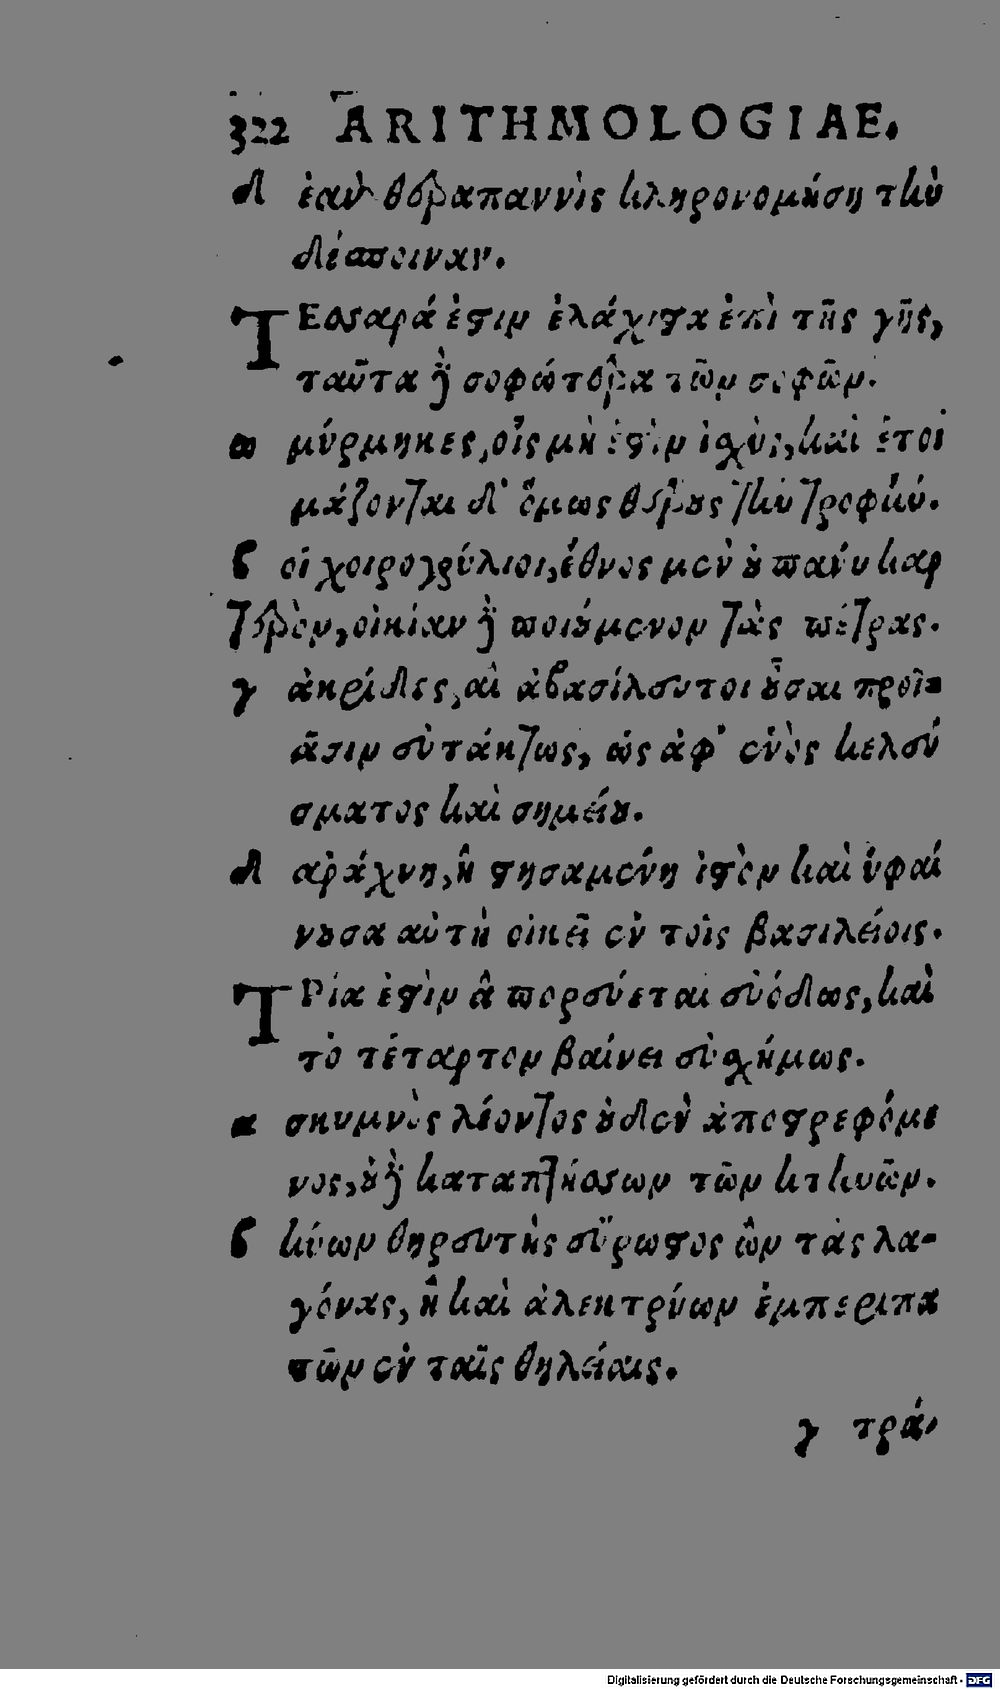 322 ARITHMOLOGIAE.
δ ἐὰν θεραπαινὶς κληρονομήσῃ τὴν
δέσποιναν.
ΤΕσσαρά ἐστιν ἐλάχιστα ἐπὶ τῆς γῆς,
ταῦτα δὲ σοφώτερα τῶν σοφῶν.
α μύρμηκες, οἷς μὴ ἐστὶν ἰσχὺς, καὶ ἑτοι
μάζονται δ' ὅμως θέρους τὴν τροφήν.
β οἱ χοιρογρύλιοι, ἔθνος μὲν οὐ πάνυ καρ
τερὸν, οἰκίαν δὲ ποιούμενον τὰς πέτρας.
γ ἀκρίδες, αἱ ἀβασίλευτοι οὖσαι προϊ-
ᾶσιν εὐτάκτως, ὡς ἀφ' ἑνὸς κελεύ
σματος καὶ σημείου.
δ ἀράχνη, ἣ στησαμένη ἱστὸν καὶ ὑφαί
νουσα αὐτὴ οἰκεῖ ἐν τοῖς βασιλείοις.
ΤΡία ἐστὶν ἃ πορεύεται εὐόδως, καὶ
τὸ τέταρτον βαίνει εὐσχήμως.
α σκυμνὸς λέοντος οὐδὲν ἀποστρεφόμε
νος, οὐδὲ καταπτήσσων τῶν κτηνῶν.
β κύων θηρευτὴς εὔρωστος ὢν τὰς λα-
γόνας, ἢ καὶ ἀλεκτρύων ἐμπεριπα
τῶν ἐν ταῖς θηλείαις.
γ τρά-
Digitalisierung gefördert durch die Deutsche Forschungsgemeinschaft - DFG